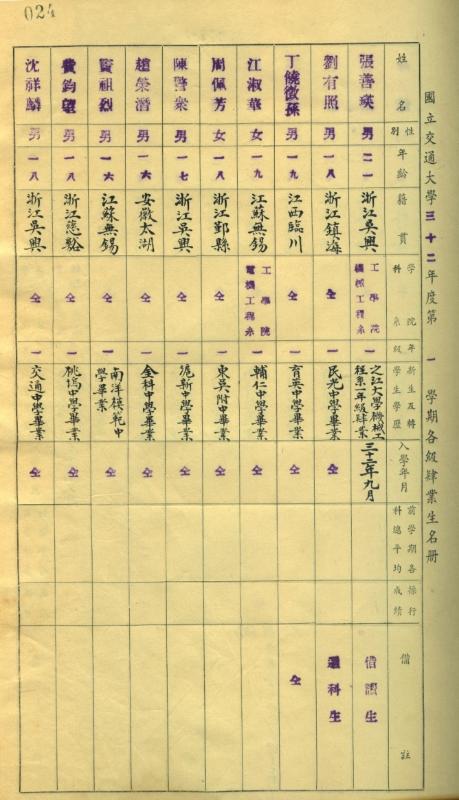 024
國立交通大學三十二年度第一學期各級肄業生名冊
姓名 性別 年齡 籍貫 學院科系 年級 新生及轉學生學歷 入學年月 前學期各科總平均 操行成績 備註
張善瑛 男 二一 浙江吳興 工學院機械工程系 一 之江大學機械工程系一年級肄業 三十二年九月 借讀生
劉有照 男 一八 浙江鎮海 仝 一 民光中學畢業 仝 選科生
丁饒徵孫 男 一九 江西臨川 仝 一 育英中學畢業 仝 仝
江淑華 女 一九 江蘇無錫 工學院電機工程系 一 輔仁中學畢業 仝
周佩芳 女 一八 浙江鄞縣 仝 一 東吳附中畢業 仝
陳警衆 男 一七 浙江吳興 仝 一 滬新中學畢業 仝
趙榮潛 男 一六 安徽太湖 仝 一 金科中學畢業 仝
祖烈 男 一六 江蘇無錫 仝 一 南洋模範中學畢業 仝
費鈞望 男 一八 浙江慈谿 仝 一 桃塢中學畢業 仝
沈祥麟 男 一八 浙江吳興 仝 一 交通中學畢業 仝